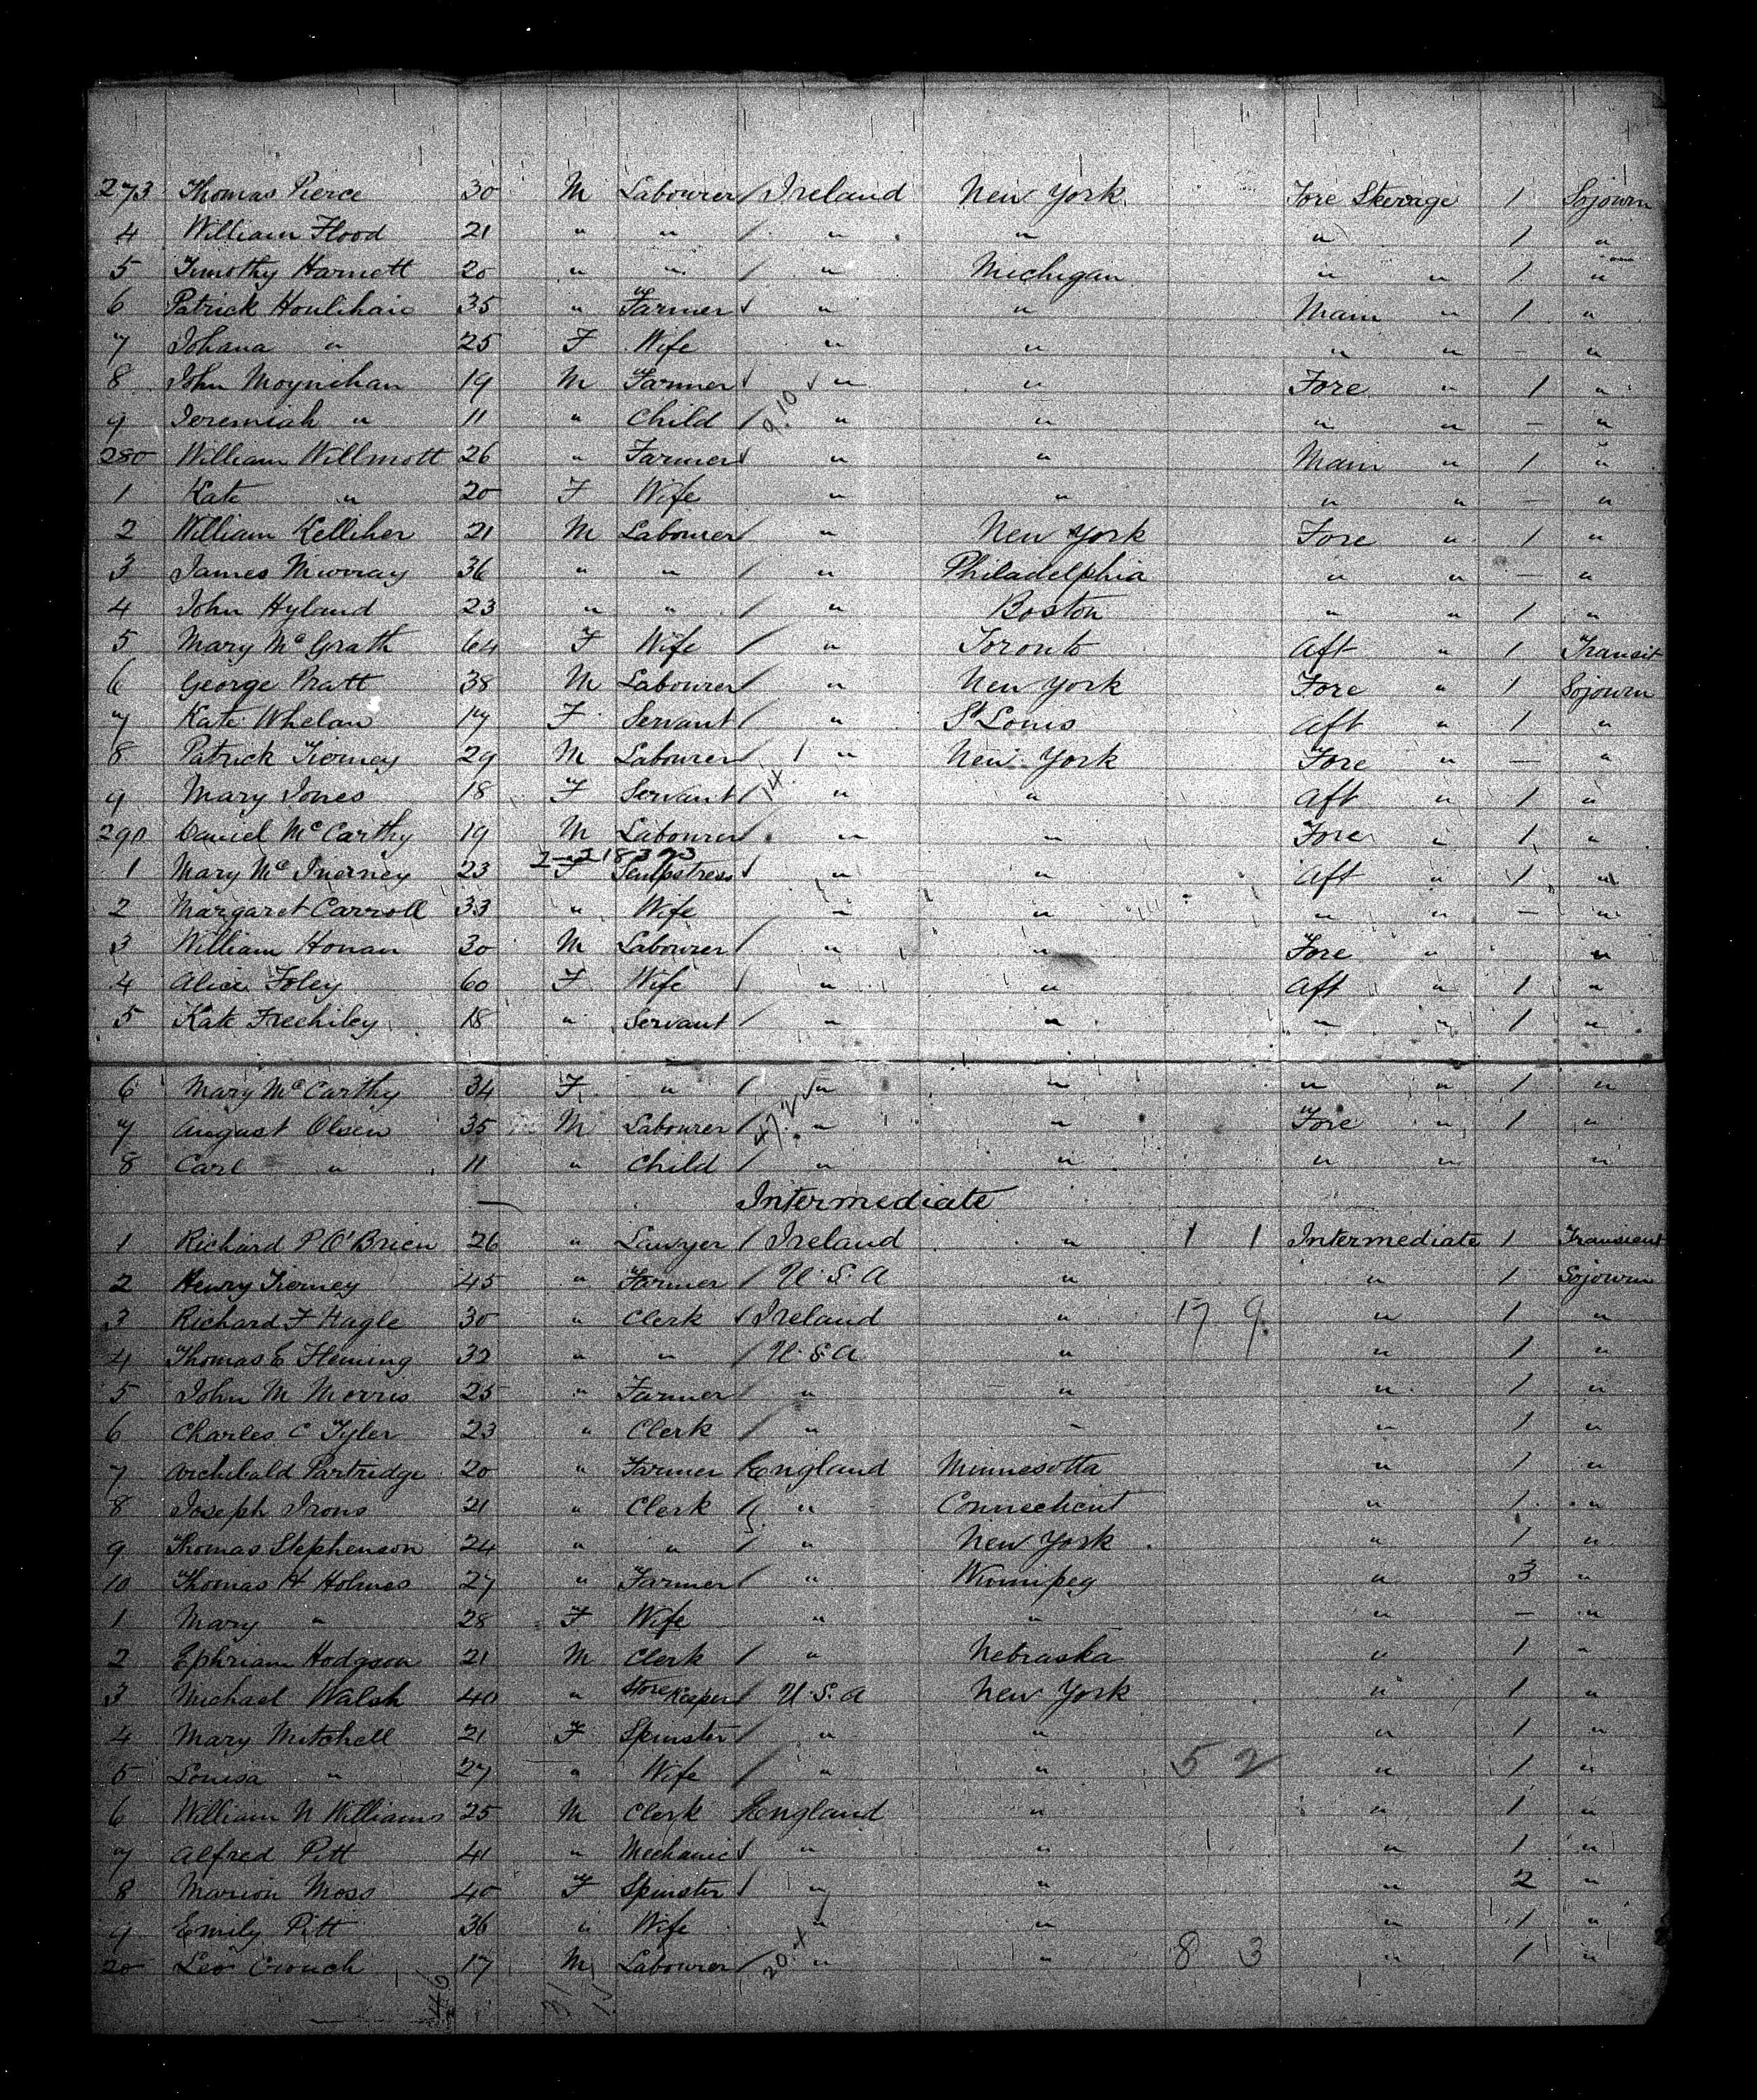 273 Thomas Pierce 30 M Labourer / Ireland New York Fore Steerage 1 Sojourn
4 William Flood 21 " " / " " " 1 "
5 Timothy Harnett 20 " " / " Michigan " " 1 "
6 Patrick Houlihan 35 " Farmer / " " Main " 1 "
7 Johana " 25 F Wife " " " " - "
8 John Moynihan 19 M Farmer / " " Fore " 1 "
9 Jeremiah " 11 " Child / 9.10 " " " " - "
280 William Willmott 26 " Farmer / " " Main " 1 "
1 Kate " 20 F Wife " " " " - "
2 William Kelliher 21 M Labourer / " New York Fore " 1 "
3 James Murray 36 " " / " Philadelphia " " - "
4 John Hyland 23 " " / " Boston " " 1 "
5 Mary McGrath 64 F Wife / " Toronto Aft " 1 Transit
6 George Pratt 38 M Labourer / " New York Fore " 1 Sojourn
7 Kate Whelan 17 F Servant / " St Louis Aft " 1 "
8 Patrick Tierney 29 M Labourer / " New York Fore " - "
9 Mary Jones 18 F Servant / 14 " " Aft " 1 "
290 Daniel McCarthy 19 M Labourer / " " Fore " 1 "
2-218393
1 Mary McInerney 23 F Sculpstress / " " Aft " 1 "
2 Margaret Carroll 33 " Wife " " " " - "
3 William Honan 30 M Labourer / " " Fore " "
4 Alice Foley 60 F Wife / " " Aft " 1 "
5 Kate Frechiley 18 " Servant / " " " " 1 "
6 Mary McCarthy 34 F " / " " " " 1 "
7 August Olsen 35 M Labourer / " " Fore " 1 "
8 Carl " 11 " Child / " " " " "
Intermediate
1 Richard P O'Brien 26 " Lawyer / Ireland " 1 1 Intermediate 1 Transient
2 Henry Tierney 45 " Farmer / U.S.A " " 1 Sojourn
3 Richard F Hagle 30 " Clerk / Ireland " 17 9 " 1 "
4 Thomas E Fleming 32 " " / U.S.A " " 1 "
5 John M Morris 25 " Farmer / " " " 1 "
6 Charles C Tyler 23 " Clerk / " " " 1 "
7 Archibald Partridge 20 " Farmer England Minnesotta " 1 "
8 Joseph Irons 21 " Clerk / " Connecticut " 1 "
9 Thomas Stephenson 24 " " / " New York " 1 "
10 Thomas H Holmes 27 " Farmer / " Winnipeg " 3 "
1 Mary " 28 F Wife " " " - "
2 Ephriam Hodgson 21 M Clerk / " Nebraska " 1 "
3 Michael Walsh 40 " Storekeeper / U.S.A New York " 1 "
4 Mary Mitchell 21 F Spinster / " " " 1 "
5 Louisa " 27 " Wife / " " 5 2 " 1 "
6 William N Williams 25 M Clerk England " " 1 "
7 Alfred Pitt 41 " Mechanic / " " " 1 "
8 Marion Moss 40 F Spinster / " " " 2 "
9 Emily Pitt 36 " Wife " " " 1 "
20 Leo Crouch 17 M Labourer / 20.4 " " 8 3 " 1 "
446 31 15